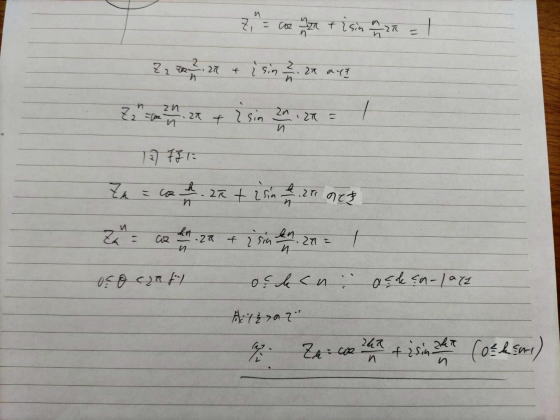 Z₁ⁿ = cos n/n 2π + i sin n/n 2π = 1
Z₂ = cos 2/n · 2π + i sin 2/n · 2π のとき
Z₂ⁿ = cos 2n/n · 2π + i sin 2n/n · 2π = 1
同様に
Zₖ = cos k/n · 2π + i sin k/n · 2π のとき
Zₖⁿ = cos kn/n · 2π + i sin kn/n · 2π = 1
0 ≤ θ < 2π より 0 ≤ k < n ∵ 0 ≤ k ≤ n-1 のとき
成り立つので
Zₖ = cos 2kπ/n + i sin 2kπ/n (0 ≤ k ≤ n-1)